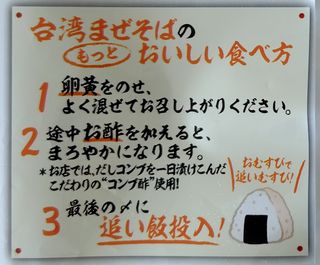 台湾まぜそばの
もっと おいしい食べ方
1 卵黄をのせ、
よく混ぜてお召し上がりください。
2 途中お酢を加えると、
まろやかになります。
*お店では、だしコンブを一日漬けこんだ
こだわりの"コンブ酢"使用!
おむすびで
追いむすび!
3 最後の〆に
追い飯投入!